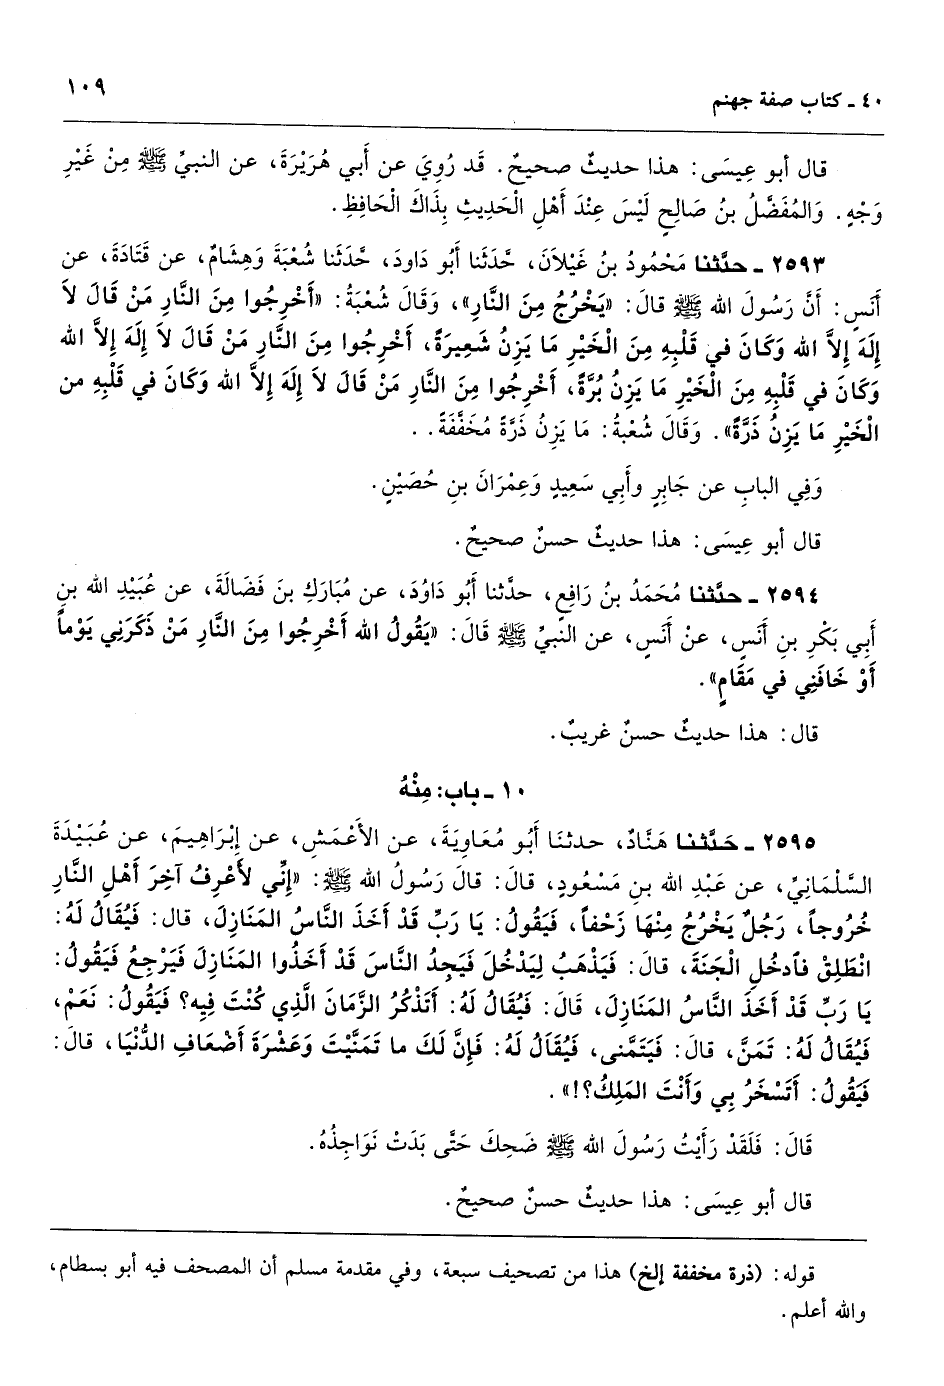 ٤٠ - كتاب صفة جهنم ١٠٩
قال أبو عِيسَى: هذا حديثٌ صحيحٌ. قَد رُوِيَ عن أَبي هُرَيْرَةَ، عن النبيِّ ﷺ مِنْ غَيْرِ
وَجْهٍ. وَالمُفَضَّلُ بنُ صَالِحٍ لَيْسَ عِنْدَ أَهْلِ الْحَدِيثِ بِذَاكَ الْحَافِظِ.
٢٥٩٣ - حدَّثنا مَحْمُودُ بنُ غَيْلاَنَ، حَّدَثَنا أَبُو دَاودَ، حَّدَثَنا شُعْبَةَ وَهِشَامُ، عن قَتَادَةَ، عن
أَنَسٍ: أَنَّ رَسُولَ الله ﷺ قالَ: «يَخْرُجُ مِنَ النَّارِ»، وَقَالَ شُعْبَةُ: «أَخْرِجُوا مِنَ النَّارِ مَنْ قَالَ لاَ
إِلَهَ إِلاَّ الله وَكَانَ في قَلْبِهِ مِنَ الْخَيْرِ مَا يَزِنُ شَعِيرَةً، أَخْرِجُوا مِنَ النَّارِ مَنْ قَالَ لاَ إِلَهَ إِلاَّ الله
وَكَانَ في قَلْبِهِ مِنَ الْخَيْرِ مَا يَزِنُ بُرَّةً، أَخْرِجُوا مِنَ النَّارِ مَنْ قَالَ لاَ إِلَهَ إِلاَّ الله وَكَانَ في قَلْبِهِ من
الْخَيْرِ مَا يَزِنُ ذَرَّةً». وَقَالَ شُعْبَةُ: مَا يَزِنُ ذَرَّةً مُخَفَّفَةً. .
وَفِي البابِ عن جَابِرٍ وأَبي سَعِيدٍ وَعِمْرَانَ بنِ حُصَيْنٍ.
قال أبو عِيسَى: هذا حديثٌ حسنٌ صحيحٌ.
٢٥٩٤ - حدَّثنا مُحَمَدُ بنُ رَافِعٍ، حدَّثنا أَبُو دَاوُدَ، عن مُبَارَكِ بنَ فَضَالَةَ، عن عُبَيْدِ الله بنِ
أَبِي بَكْرِ بنِ أَنَسٍ، عنْ أَنَسٍ، عن النبيِّ ﷺ قَالَ: «يَقُولُ الله أَخْرِجُوا مِنَ النَّارِ مَنْ ذَكَرَنِي يَوْماً
أَوْ خَافَنِي في مَقَامٍ».
قال: هذا حديثٌ حسنٌ غريبٌ.
١٠ - باب: مِنْهُ
٢٥٩٥ - حَدَّثَنا هَنَّادٌ، حدثنَا أَبُو مُعَاوِيَةَ، عن الأَعْمَشِ، عن إِبْرَاهِيمَ، عن عُبَيْدَةَ
السَّلْمَانِيِّ، عن عَبْدِ الله بنِ مَسْعُودٍ، قالَ: قالَ رَسُولُ الله ﷺ: «إِنِّي لأَعْرِفُ آخِرَ أَهْلِ النَّارِ
خُرُوجاً، رَجُلٌ يَخْرُجُ مِنْهَا زَحْفاً، فَيَقُولُ: يَا رَبِّ قَدْ أَخَذَ النَّاسُ المَنَازِلَ، قال: فَيُقَالُ لَهُ:
انْطَلِقْ فَادخُلِ الْجَنَةَ، قالَ: فَيَذْهَبُ لِيَدْخُلَ فَيَجِدُ النَّاسَ قَدْ أَخَذُوا المَنَازِلَ فَيَرْجِعُ فَيَقُولُ:
يَا رَبِّ قَدْ أَخَذَ النَّاسُ المَنَازِلَ، قَالَ: فَيُقَالُ لَهُ: أَتَذْكُرُ الزَّمَانَ الَّذِي كُنْتَ فِيهِ؟ فَيَقُولُ: نَعَمْ،
فَيُقَالُ لَهُ: تَمَنَّ، قالَ: فَيَتَمَّنى، فَيُقَالُ لَهُ: فَإِنَّ لَكَ ما تَمَنَّيْتَ وَعَشْرَةَ أَضْعَافِ الدُّنْيَا، قالَ:
فَيَقُولُ: أَتَسْخَرُ بِي وَأَنْتَ المَلِكُ؟!».
قَالَ: فَلَقَدْ رَأَيْتُ رَسُولَ الله ﷺ ضَحِكَ حَتَّى بَدَتْ نَوَاجِذُهُ.
قال أبو عِيسَى: هذا حديثٌ حسنٌ صحيحٌ.
قوله: (ذرة مخففة إلخ) هذا من تصحيف سبعة، وفي مقدمة مسلم أن المصحف فيه أبو بسطام،
والله أعلم.